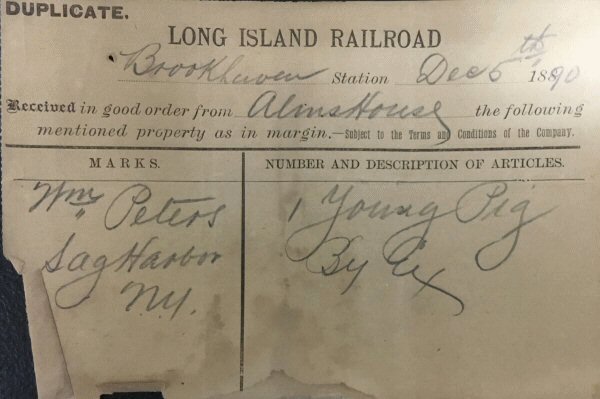 DUPLICATE.
LONG ISLAND RAILROAD
Brookhaven Station Dec 5th 1890
Received in good order from AlmsHouse the following
mentioned property as in margin.—Subject to the Terms and Conditions of the Company.
MARKS.
Wm Peters
Sag Harbor
N.Y.
NUMBER AND DESCRIPTION OF ARTICLES.
1 Young Pig
By Ex